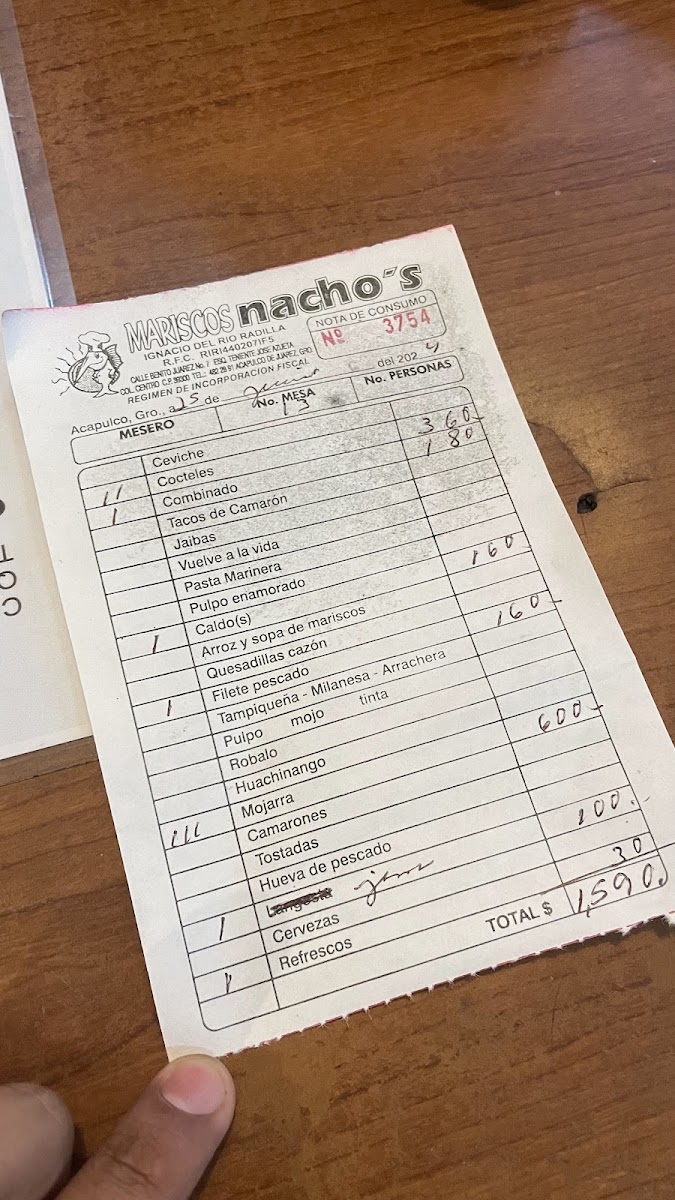 MARISCOS nacho's
IGNACIO DEL RIO RADILLA
R.F.C. RIRI440207IF5
CALLE BENITO JUAREZ No. 7 ESQ. TENIENTE JOSE AZUETA
COL. CENTRO C.P. 39300 TEL.: 482 28 91 ACAPULCO DE JUAREZ, GRO.
REGIMEN DE INCORPORACION FISCAL
NOTA DE CONSUMO
Nº 3754
Acapulco, Gro., a 25 de del 2024
MESERO No. MESA No. PERSONAS
13
Ceviche
11 Cocteles 360
1 Combinado 180
Tacos de Camarón
Jaibas
Vuelve a la vida
Pasta Marinera
Pulpo enamorado
1 Caldo(s) 160
Arroz y sopa de mariscos
Quesadillas cazón
1 Filete pescado 160
Tampiqueña - Milanesa - Arrachera
Pulpo mojo tinta
Robalo
Huachinango
111 Mojarra 600
Camarones
Tostadas
Hueva de pescado
1 Langosta 100
Cervezas
1 Refrescos 30
TOTAL $ 1,590